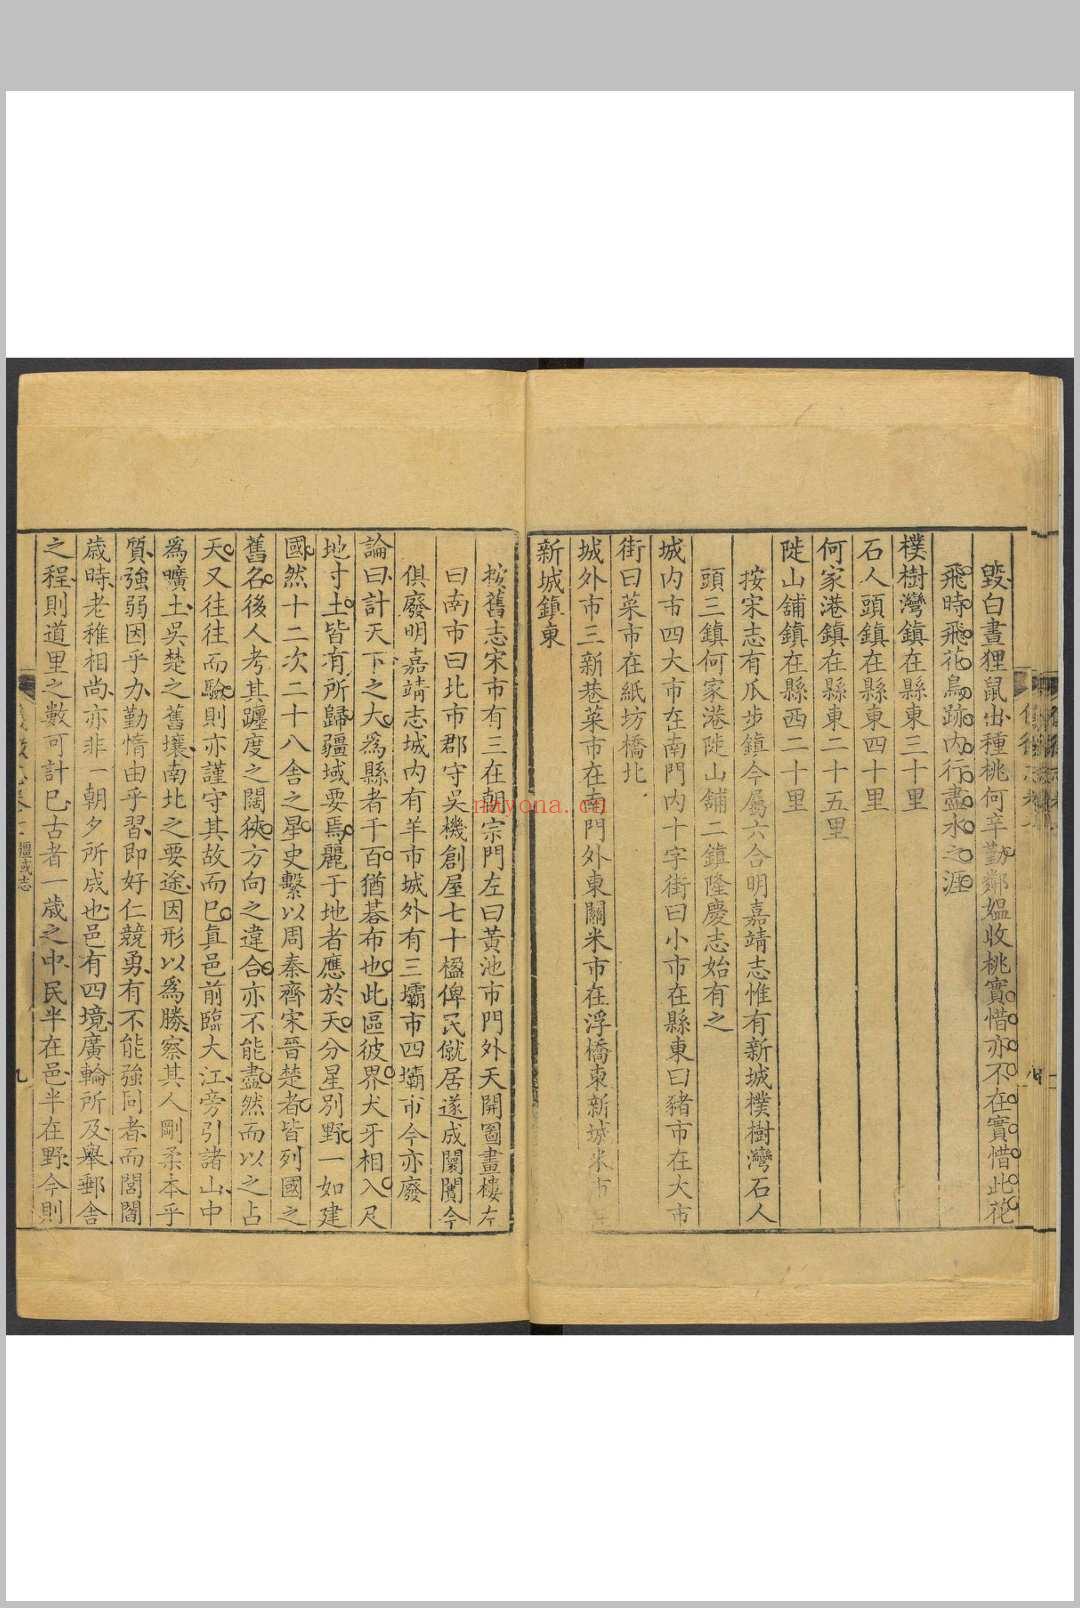 毀白晝狸鼠出種桃何辛勤鄰媪收桃實惜亦不在實惜此花
飛時飛花鳥跡內行盡水之涯
樸樹灣鎮在縣東三十里
石人頭鎮在縣東四十里
何家港鎮在縣東二十五里
陡山舖鎮在縣西二十里
按宋志有瓜步鎮今屬六合明嘉靖志惟有新城樸樹灣石人
頭三鎮何家港陡山舖二鎮隆慶志始有之
城內市四大市在南門內十字街曰小市在縣東曰豬市在大市
街曰菜市在紙坊橋北
城外市三新巷菜市在南門外東關米市在浮橋東新城米市在
新城鎮東
按舊志宋市有三在朝宗門左曰黃池市門外天開圖畫樓左
曰南市曰北市郡守吳機創屋七十楹俾民僦居遂成闤闠今
俱廢明嘉靖志城內有羊市城外有三壩市四壩市今亦廢
論曰計天下之大爲縣者千百猶碁布也此區彼界犬牙相入尺
地寸土皆有所歸疆域要焉麗于地者應於天分星別野一如建
國然十二次二十八舍之星史繫以周秦齊宋晉楚者皆列國之
舊名後人考其躔度之闊狹方向之違合亦不能盡然而以之占
天又往往而驗則亦謹守其故而已眞邑前臨大江旁引諸山中
爲曠土吳楚之舊壤南北之要途因形以爲勝察其人剛柔本乎
質強弱因乎力勤惰由乎習即好仁競勇有不能強同者而閭閻
歲時老稚相尚亦非一朝夕所成也邑有四境廣輪所及舉郵舍
之程則道里之數可計已古者一歲之中民半在邑半在野今則
疆域志
九
nayona.cn